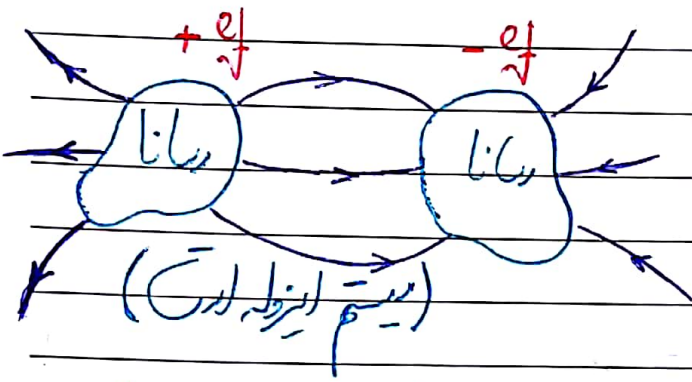 رسانا رسانا
(سیستم ایزوله است)